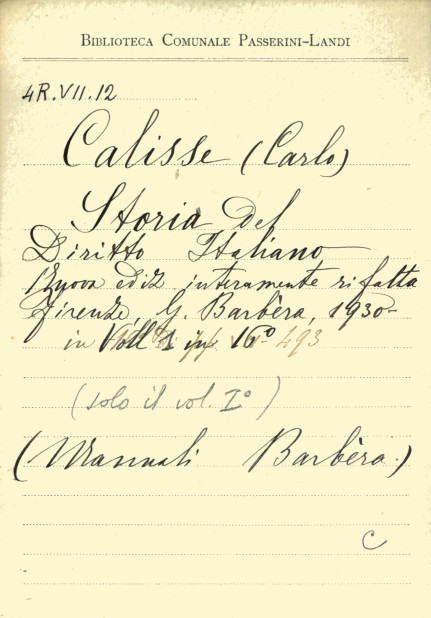 BIBLIOTECA COMUNALE PASSERINI-LANDI
4R.VII.12
Calisse (Carlo)
Storia del
Diritto Italiano
Nuova ediz interamente rifatta
Firenze, G. Barbèra, 1930-
in Voll 1 in 16° 493
(solo il vol. I°)
(Manuali Barbèra)
C